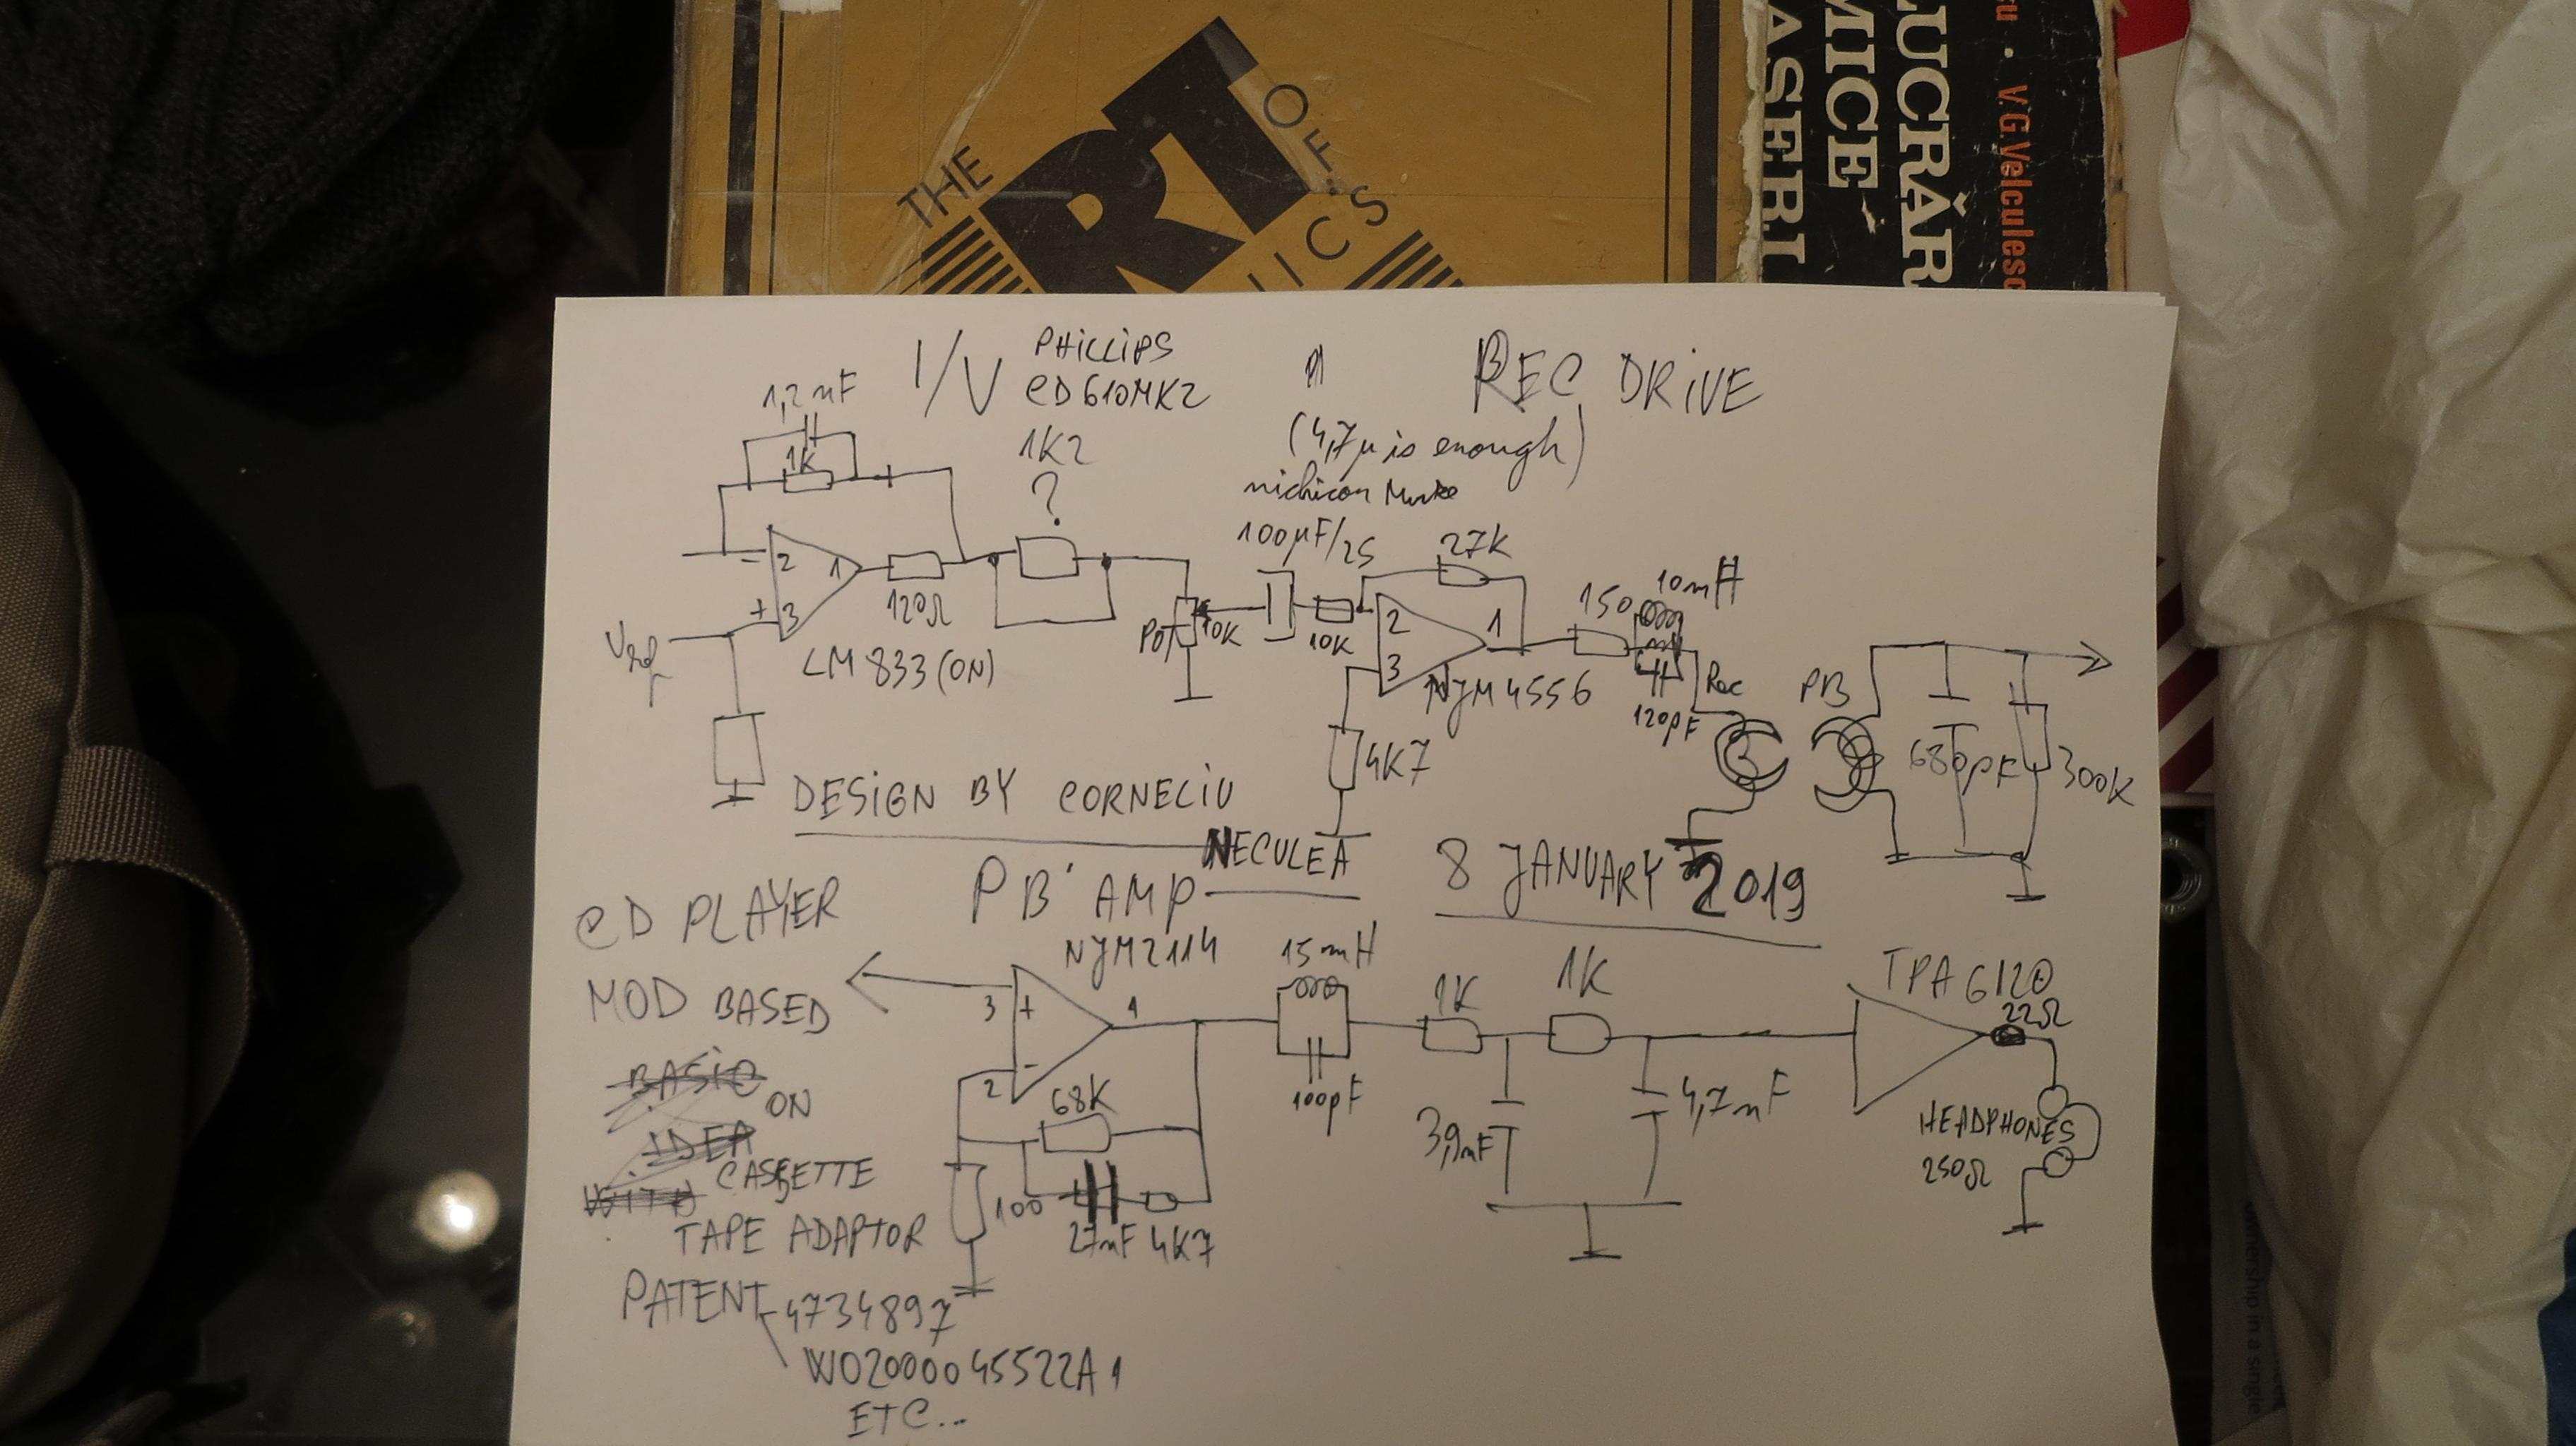 THE
ART
OF
LUCRĂR
MICE
ASERI
V.G.Velculesc
I/V PHILLIPS
CD610MK2
REC DRIVE
1,2nF
1K
1K2
?
(4,7µ is enough)
nichicon Muse
100µF/25
27K
10mH
150
2
1
3
-
+
120Ω
LM833(ON)
Vref
POT
10K
10K
2
3
1
NJM4556
120pF
Rec
PB
680pF
300K
4K7
DESIGN BY CORNELIU
NECULEA
8 JANUARY 2019
PB AMP
NJM2114
CD PLAYER
MOD BASED
BASIC
ON
IDEA
WITH
CASSETTE
TAPE ADAPTOR
PATENT - 4734897
WO2000045522A1
ETC...
3
+
1
2
-
68K
100
27nF
4K7
15mH
100pF
1K
1K
3,9nF
4,7nF
TPA6120
22Ω
HEADPHONES
250Ω